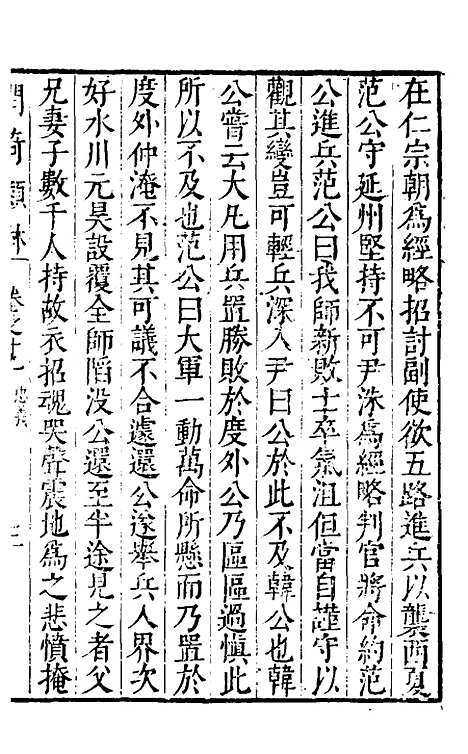 在仁宗朝爲經略招討副使欲五路進兵以襲西夏
范公守延州堅持不可尹洙爲經略判官將命約范
公進兵范公曰我師新敗士卒氣沮但當自謹守以
觀其變豈可輕兵深入尹曰公於此不及韓公也韓
公嘗云大凡用兵置勝敗於度外公乃區區過愼此
所以不及也范公曰大軍一動萬命所懸而乃置於
度外仲淹不見其可議不合遽還公遂舉兵入界次
好水川元昊設覆全師陷没公還至半途見之者父
兄妻子數千人持故衣招魂哭聲震地爲之悲憤掩
卷之十 忠義